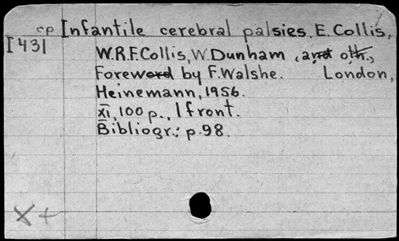 cp Infantile cerebral palsies. E. Collis,
I431 W.R.F. Collis, W. Dunham, and oth.,
Foreword by F. Walshe. London,
Heinemann, 1956.
XI, 100 p., 1 front.
Bibliogr.: p. 98.
X +